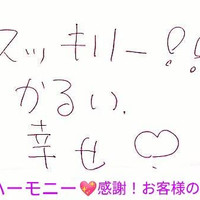 スッキリー!!
かるい!
幸せ♡
ハーモニー💖感謝!お客様の